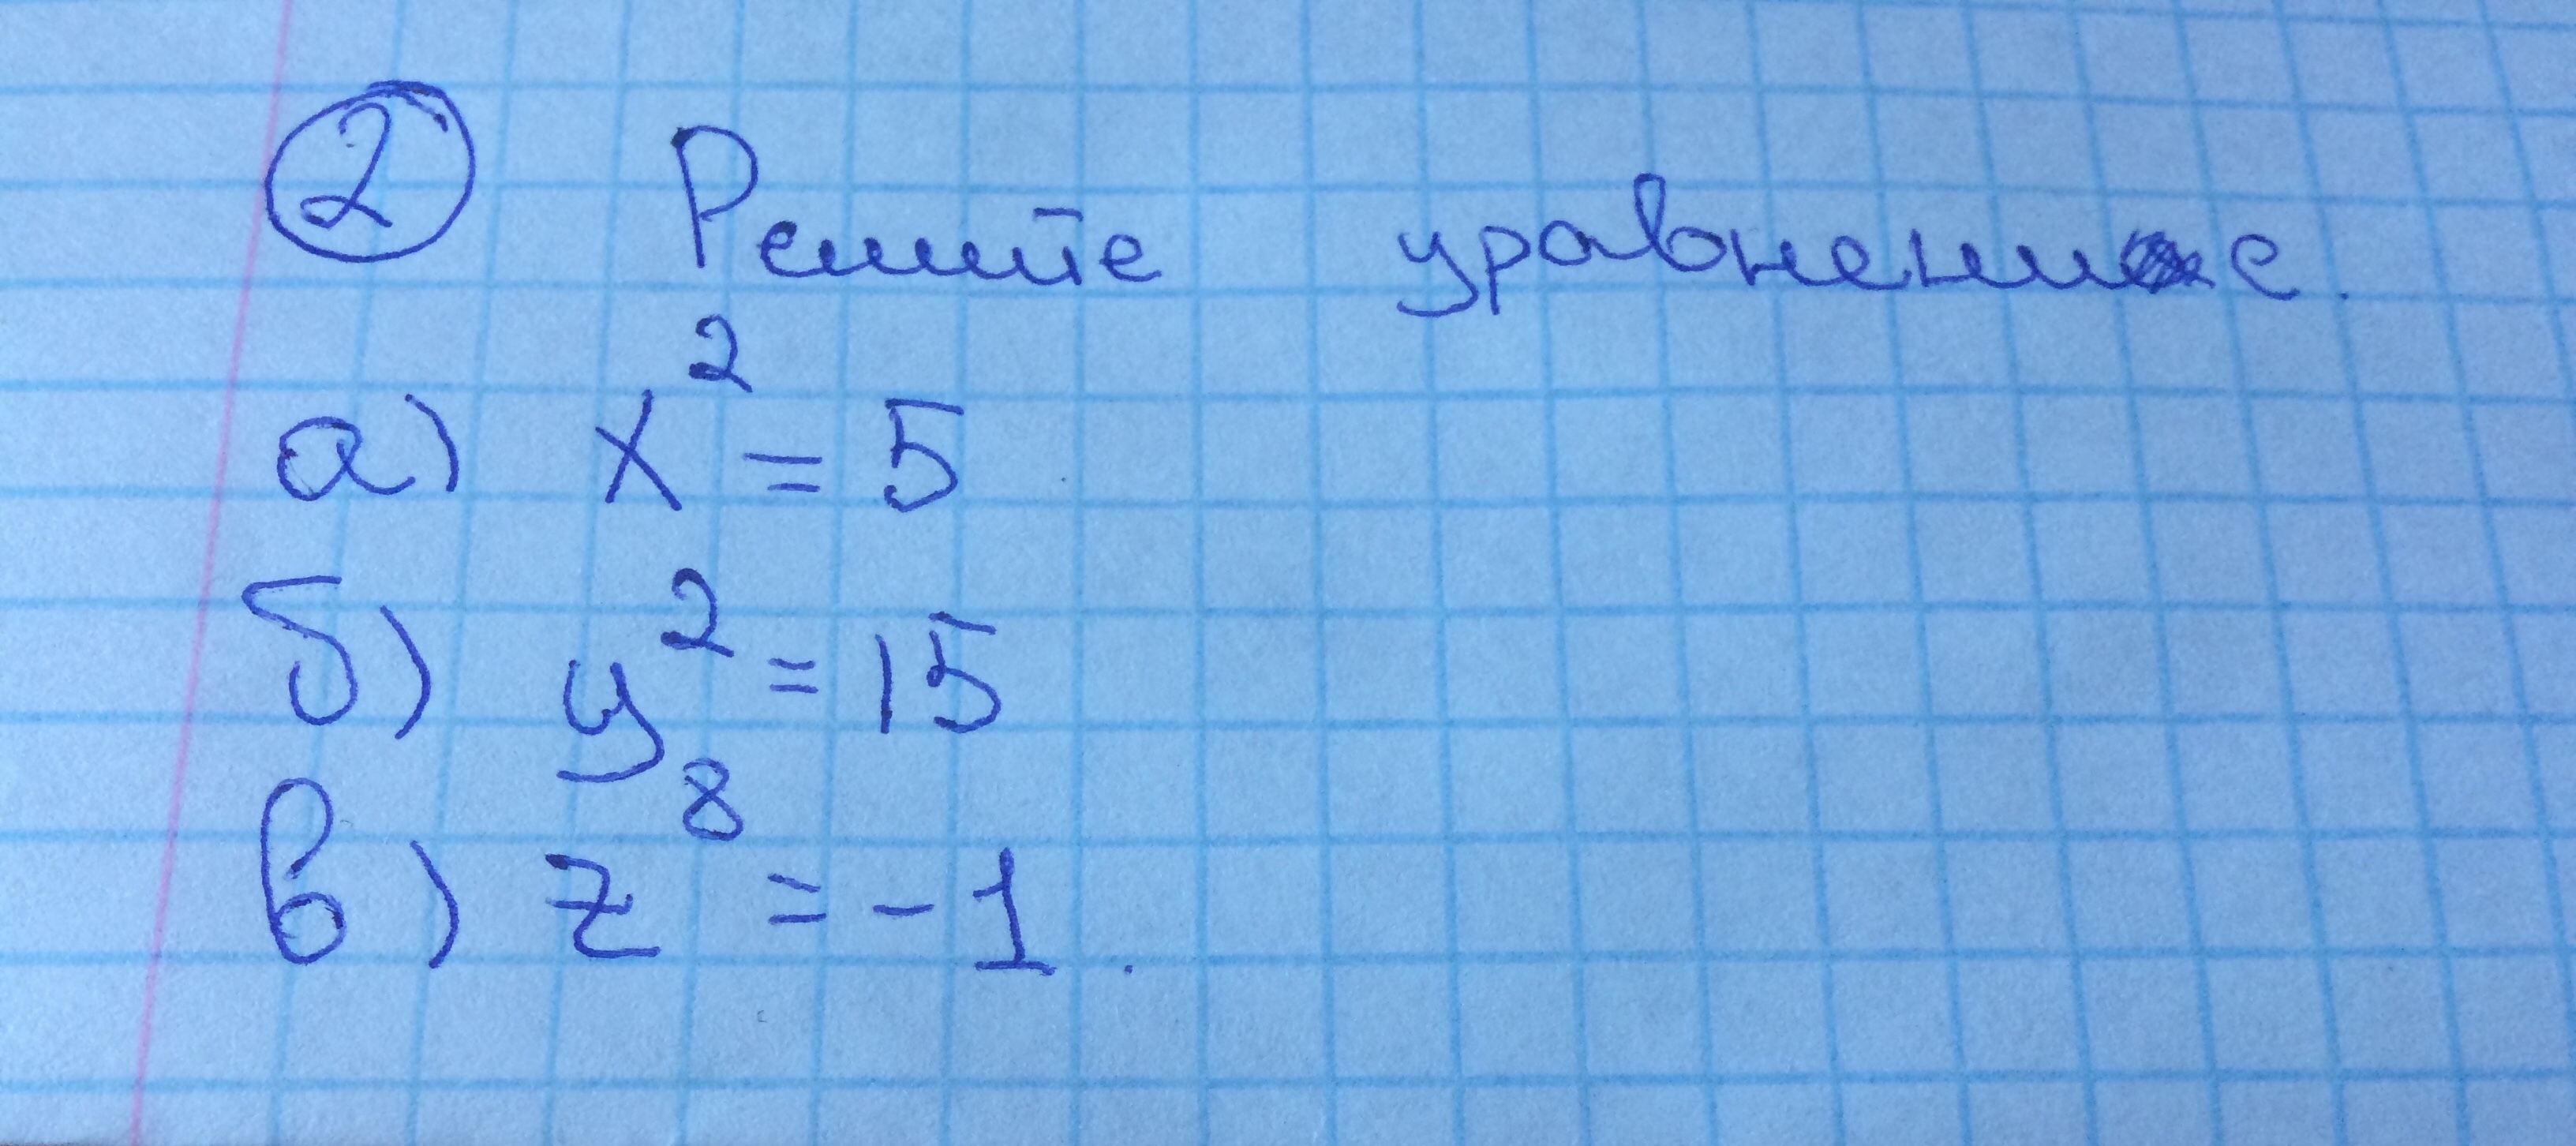 2 Решите уравнение.
а) x² = 5
б) y² = 15
в) z⁸ = -1.